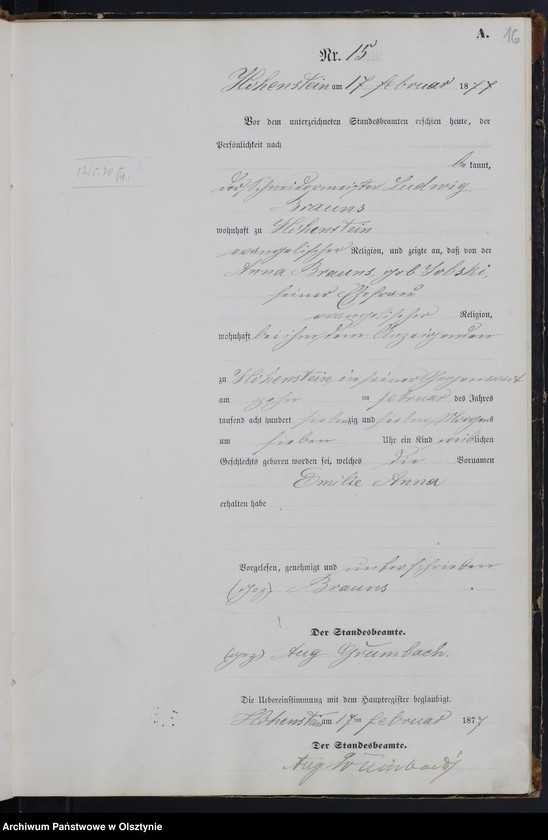 A. 16
Nr. 15
Hohenstein am 17 Februar 1877
Vor dem unterzeichneten Standesbeamten erschien heute, der
Persönlichkeit nach
be kannt,
der Schneidermeister Ludwig
Brauns
wohnhaft zu Hohenstein
evangelischer Religion, und zeigte an, daß von der
Anna Brauns, geb
seiner Ehefrau
evangelischer Religion,
wohnhaft bei ihm, dem Anzeigenden
zu Hohenstein in seiner Gegenwart
am im Februar des Jahres
tausend acht hundert siebenzig und sieben, Morgens
um sieben Uhr ein Kind weiblichen
Geschlechts geboren worden sei, welches die Vornamen
Emilie Anna
erhalten habe
Vorgelesen, genehmigt und unterschrieben
(gez) Brauns
Der Standesbeamte.
(gez) Aug Grumbach.
Die Uebereinstimmung mit dem Hauptregister beglaubigt.
Hohenstein am 17ten Februar 1877
Der Standesbeamte.
Aug Grumbach
Archiwum Państwowe w Olsztynie